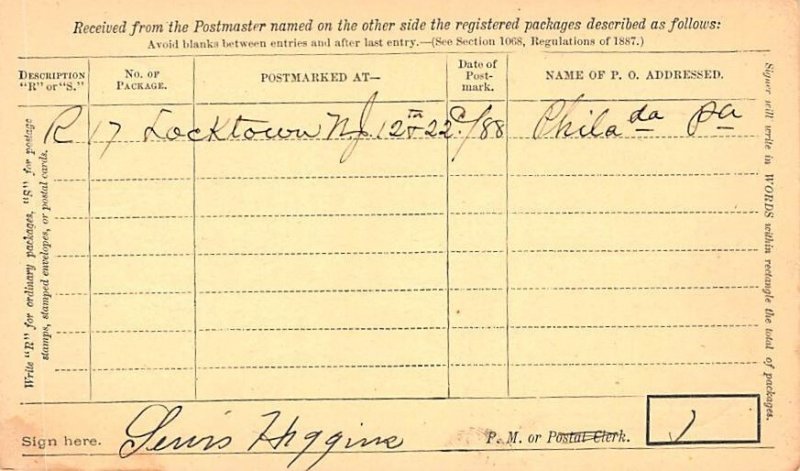 Received from the Postmaster named on the other side the registered packages described as follows:
Avoid blanks between entries and after last entry.—(See Section 1068, Regulations of 1887.)
DESCRIPTION "R" or "S."
No. of PACKAGE.
POSTMARKED AT—
Date of Post-mark.
NAME OF P. O. ADDRESSED.
R 17 Locktown N.J. 12 22 /88 Philada Pa
Write "R" for ordinary packages, "S" for postage
stamps, stamped envelopes, or postal cards.
Signer will write in WORDS within rectangle the total of packages.
Sign here. Lewis Higgins P. M. or Postal Clerk.